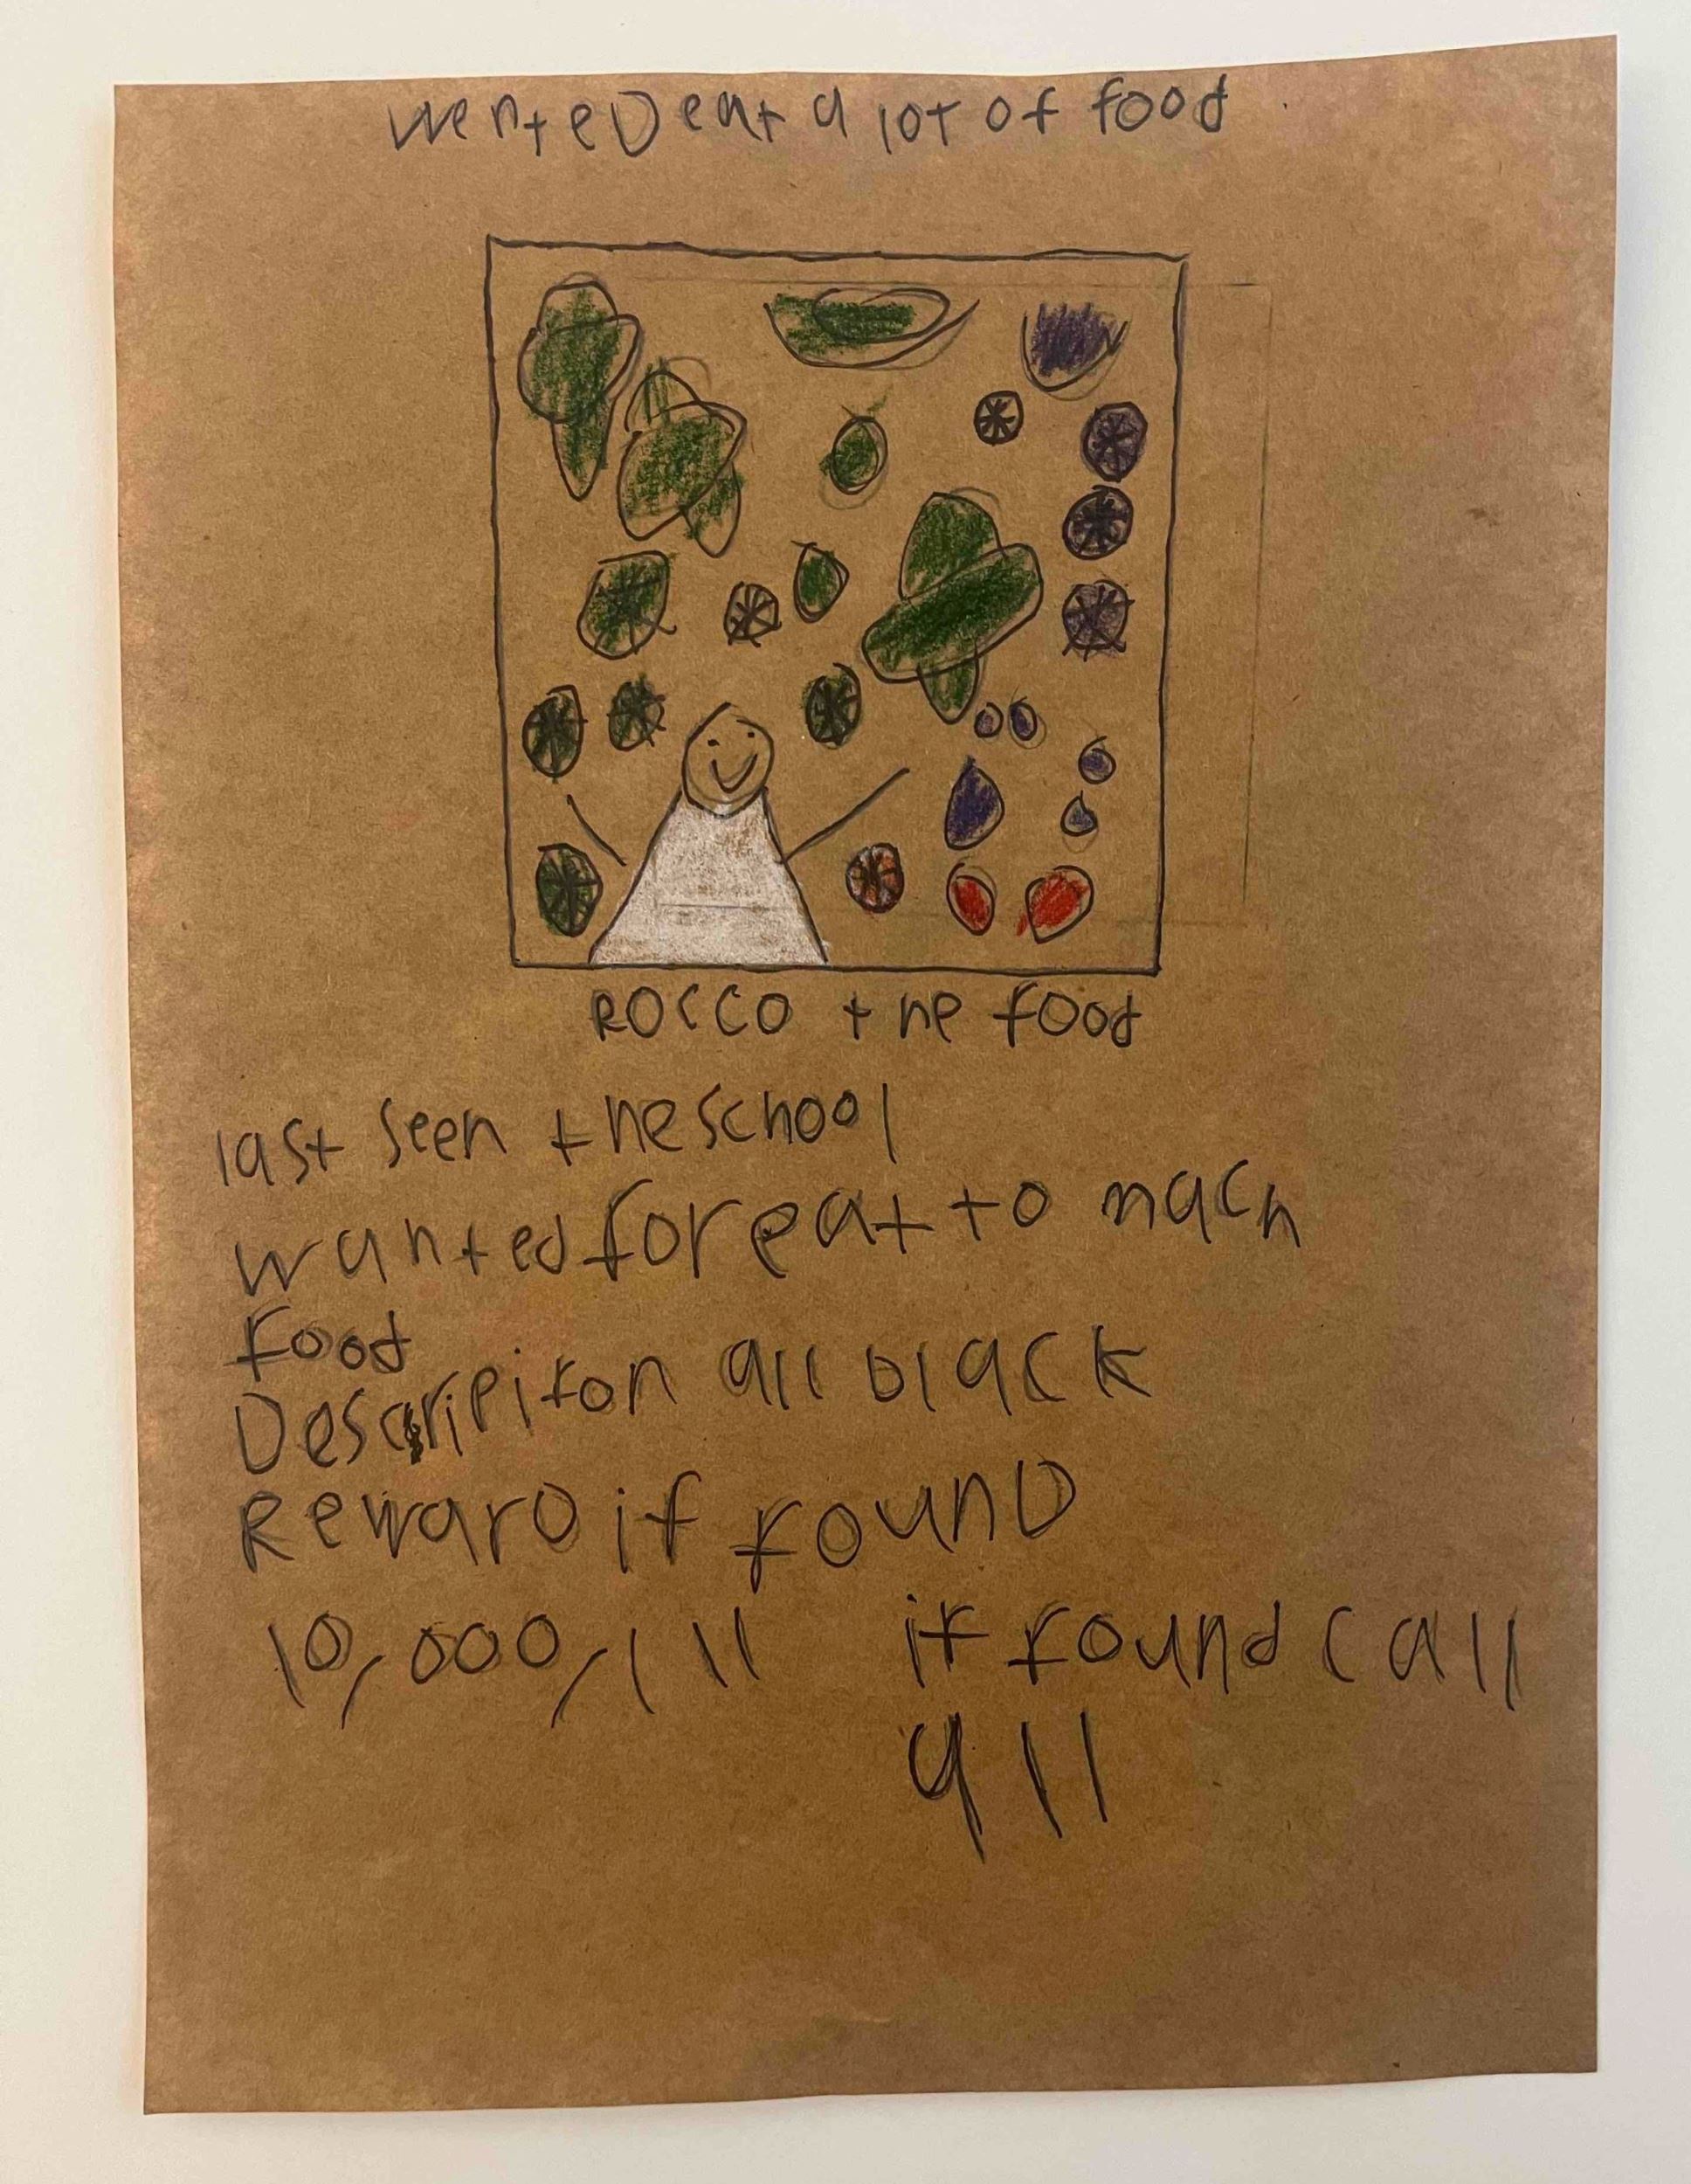 wenteD eat a lot of food
ROCCO the food
last seen the school
wanted for eat to mach
food
Descripiton all black
RewarD if founD
10,000,111 if found call
911